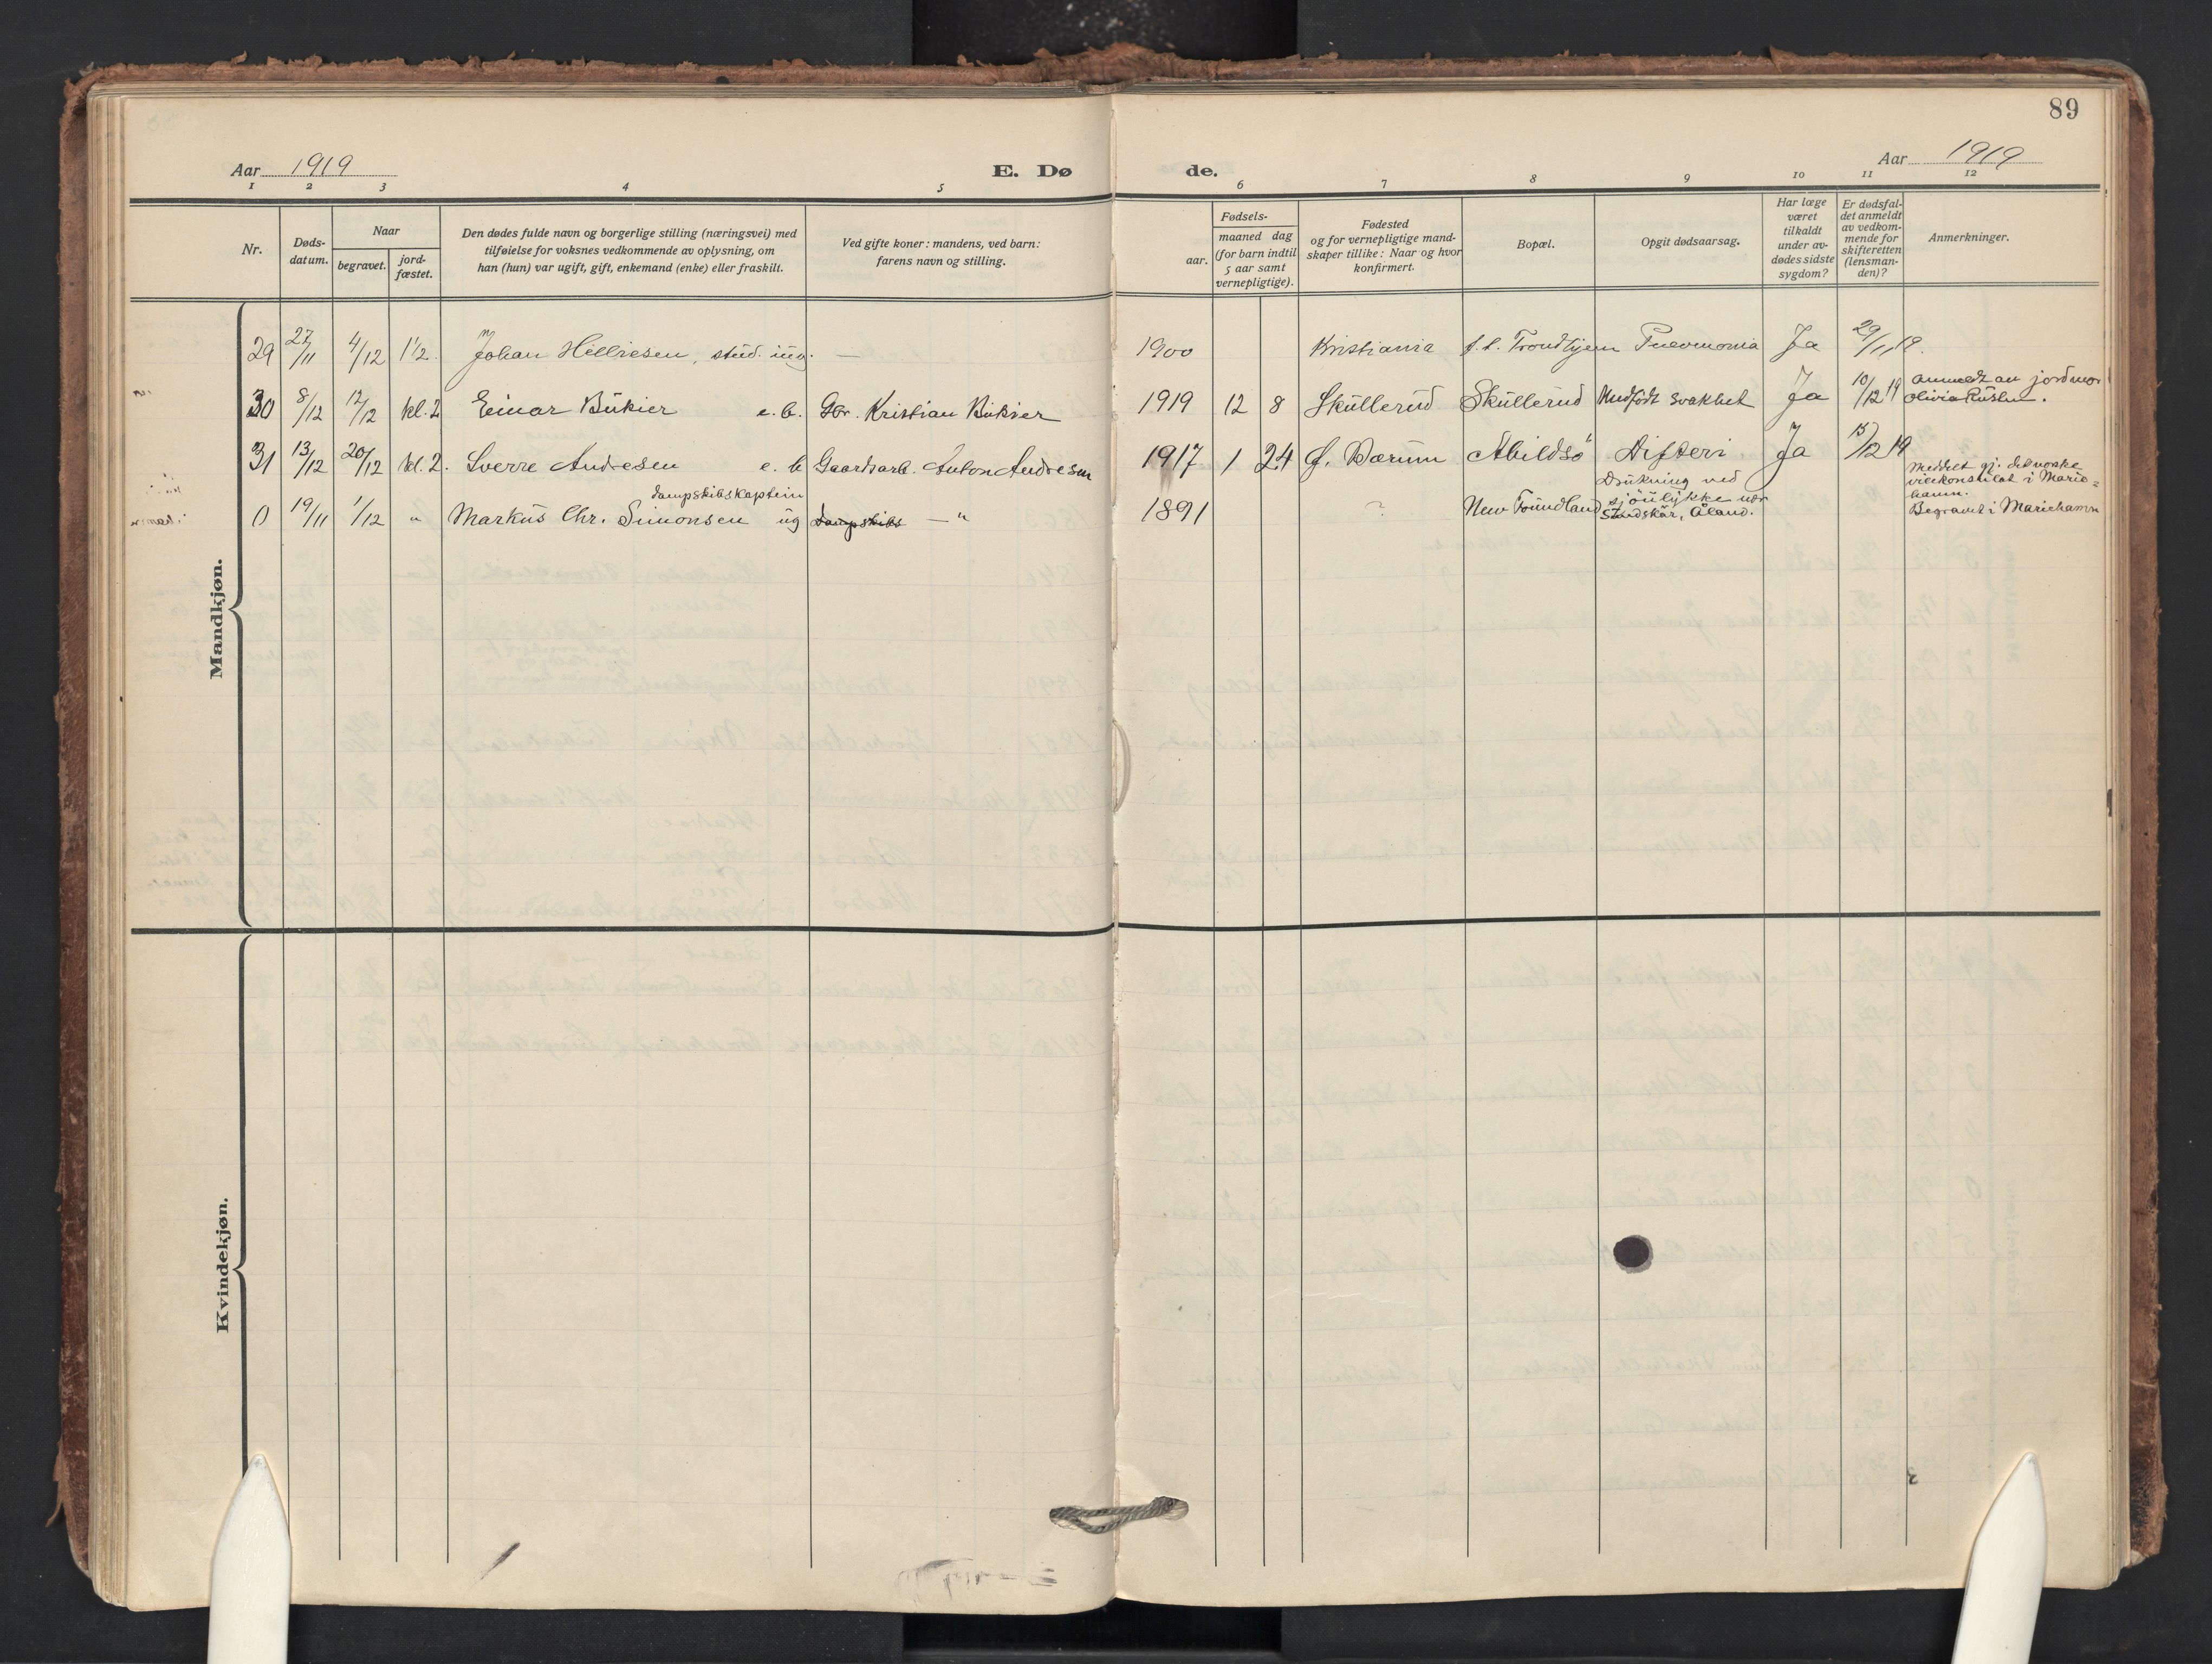 89
Aar 1919 E. Dø de. Aar 1919
1 2 3 4 5 6 7 8 9 10 11 12
Nr.
Døds-
datum.
Naar
begravet.
jord-
fæstet.
Den dødes fulde navn og borgerlige stilling (næringsvei) med
tilføielse for voksnes vedkommende av oplysning, om
han (hun) var ugift, gift, enkemand (enke) eller fraskilt.
Ved gifte koner: mandens, ved barn:
farens navn og stilling.
Fødsels-
aar.
maaned dag
(for barn indtil
5 aar samt
vernepligtige).
Fødested
og for vernepligtige mand-
skaper tillike: Naar og hvor
konfirmert.
Bopæl.
Opgit dødsaarsag.
Har læge
været
tilkaldt
under av-
dødes sidste
sygdom?
Er dødsfal-
det anmeldt
av vedkom-
mende for
skifteretten
(lensman-
den)?
Anmerkninger.
Mandkjøn.
29 27/11 4/12 1 1/2. Johan Hilliesen, stud. ing. — 1900 Kristiania f. t. Trondhjem Pneumonia Ja 29/11 19.
30 8/12 12/12 kl. 2 Einar Bükier e. b. Gbr. Kristian Bükier 1919 12 8 Skullerud Skullerud Medfödt svakhet Ja 10/12 19 Anmeldt av jordmor
Olivia
31 13/12 20/12 kl. 2. Sverre Andresen e. b Gaardsarb. Anton Andresen 1917 1 24 Ø. Bærum Abildsö Difteri Ja 15/12 19
dampskibskaptein
0 19/11 1/12 " Markus Chr. Simonsen ug Dampskibs — " 1891 ? New Foundland
Drukning ved
sjöulykke nær
Åland.
Meddelt gj. det norske
vicekonsulat i Marie=
hamn.
Begravet i Mariehamn
Kvindekjøn.